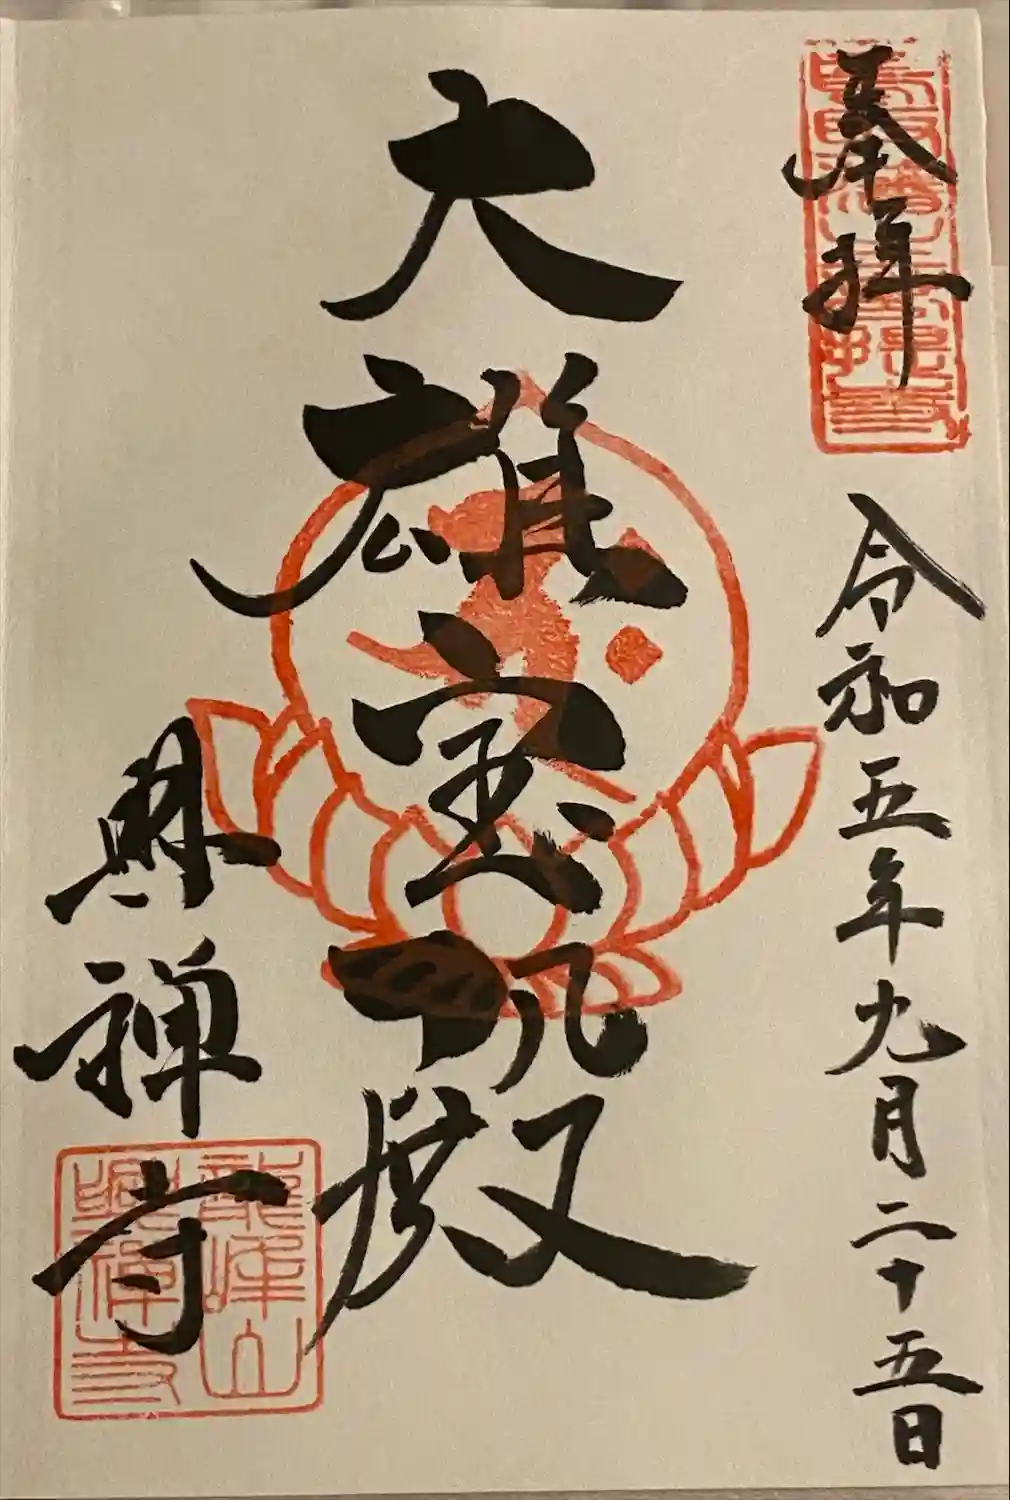 奉拝
令和五年九月二十五日
大雄宝殿
興禅寺
龍峰山
興禅寺